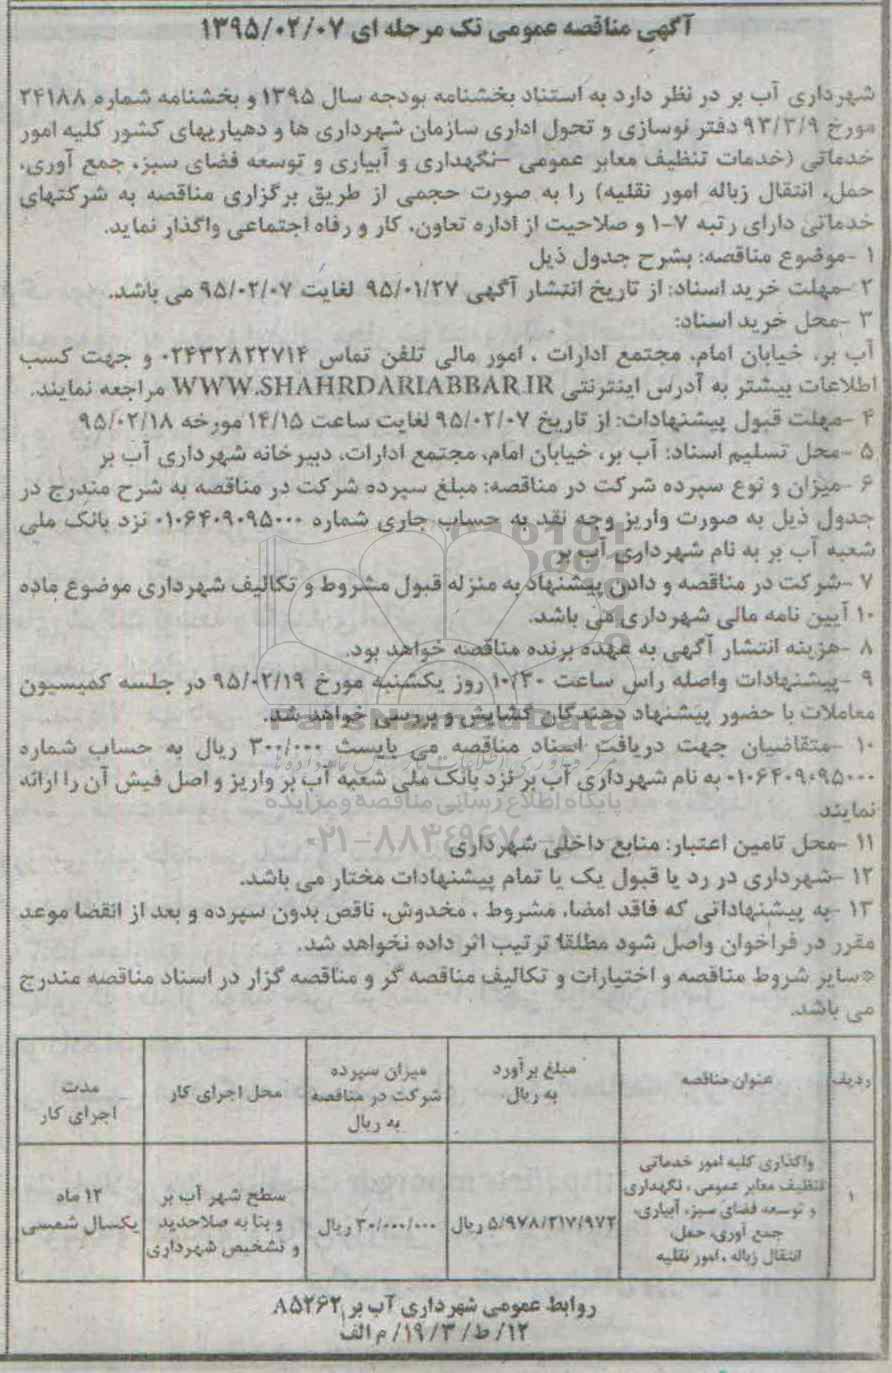 آگهی مناقصه عمومی تک مرحله ای ۱۳۹۵/۰۲/۰۷
شهرداری آب بر در نظر دارد به استناد بخشنامه بودجه سال ۱۳۹۵ و بخشنامه شماره ۲۴۱۸۸
مورخ ۹۳/۳/۹ دفتر نوسازی و تحول اداری سازمان شهرداری ها و دهیاریهای کشور کلیه امور
خدماتی (خدمات تنظیف معابر عمومی -نگهداری و آبیاری و توسعه فضای سبز، جمع آوری،
حمل، انتقال زباله امور نقلیه) را به صورت حجمی از طریق برگزاری مناقصه به شرکتهای
خدماتی دارای رتبه ۷-۱ و صلاحیت از اداره تعاون، کار و رفاه اجتماعی واگذار نماید.
۱ -موضوع مناقصه: بشرح جدول ذیل
۲ -مهلت خرید اسناد: از تاریخ انتشار آگهی ۹۵/۰۱/۲۷ لغایت ۹۵/۰۲/۰۷ می باشد.
۳ -محل خرید اسناد:
آب بر، خیابان امام، مجتمع ادارات ، امور مالی تلفن تماس ۰۲۴۳۲۸۲۲۷۱۴ و جهت کسب
اطلاعات بیشتر به آدرس اینترنتی WWW.SHAHRDARIABBAR.IR مراجعه نمایند.
۴ -مهلت قبول پیشنهادات: از تاریخ ۹۵/۰۲/۰۷ لغایت ساعت ۱۴/۱۵ مورخه ۹۵/۰۲/۱۸
۵ -محل تسلیم اسناد: آب بر، خیابان امام، مجتمع ادارات، دبیرخانه شهرداری آب بر
۶ -میزان و نوع سپرده شرکت در مناقصه: مبلغ سپرده شرکت در مناقصه به شرح مندرج در
جدول ذیل به صورت واریز وجه نقد به حساب جاری شماره ۰۱۰۶۴۰۹۰۹۵۰۰۰ نزد بانک ملی
شعبه آب بر به نام شهرداری آب بر
۷ -شرکت در مناقصه و دادن پیشنهاد به منزله قبول مشروط و تکالیف شهرداری موضوع ماده
۱۰ آیین نامه مالی شهرداری می باشد.
۸ -هزینه انتشار آگهی به عهده برنده مناقصه خواهد بود.
۹ -پیشنهادات واصله راس ساعت ۱۰/۳۰ روز یکشنبه مورخ ۹۵/۰۲/۱۹ در جلسه کمیسیون
معاملات با حضور پیشنهاد دهندگان گشایش و بررسی خواهد شد.
ParsNamadData
۱۰ -متقاضیان جهت دریافت اسناد مناقصه می بایست ۳۰۰/۰۰۰ ریال به حساب شماره
۰۱۰۶۴۰۹۰۹۵۰۰۰ به نام شهرداری آب بر نزد بانک ملی شعبه آب بر واریز و اصل فیش آن را ارائه
نمایند.
پایگاه اطلاع رسانی مناقصه و مزایده
۰۲۱-۸۸۳۴۹۶۷۰-۵
۱۱ -محل تامین اعتبار: منابع داخلی شهرداری
۱۲ -شهرداری در رد یا قبول یک یا تمام پیشنهادات مختار می باشد.
۱۳ -به پیشنهاداتی که فاقد امضا، مشروط ، مخدوش، ناقص بدون سپرده و بعد از انقضا موعد
مقرر در فراخوان واصل شود مطلقا ترتیب اثر داده نخواهد شد.
*سایر شروط مناقصه و اختیارات و تکالیف مناقصه گر و مناقصه گزار در اسناد مناقصه مندرج
می باشد.
ردیف عنوان مناقصه مبلغ برآورد به ریال میزان سپرده شرکت در مناقصه به ریال محل اجرای کار مدت اجرای کار
۱
واگذاری کلیه امور خدماتی
تنظیف معابر عمومی ، نگهداری
و توسعه فضای سبز، آبیاری،
جمع آوری، حمل،
انتقال زباله ، امور نقلیه
۵/۹۷۸/۲۱۷/۹۷۲ ریال
۳۰/۰۰۰/۰۰۰ ریال
سطح شهر آب بر
و بنا به صلاحدید
و تشخیص شهرداری
۱۲ ماه
یکسال شمسی
روابط عمومی شهرداری آب بر ۸۵۲۶۲
۱۲/ ط/ ۱۹/۳/ م الف